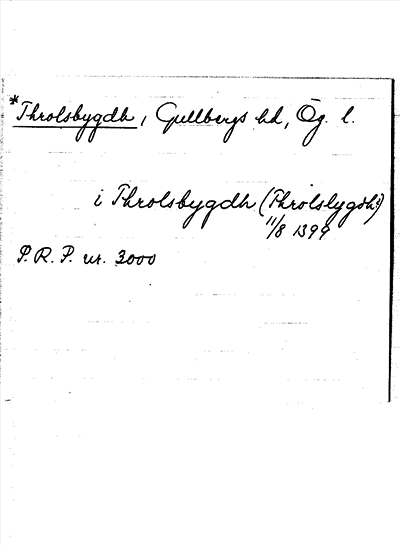 *Throlsbygdh, Gullbergs hd, Ög. l.
i Throlsbygdh (Throlslygdh?)
11/8 1399
P. R. P. nr. 3000